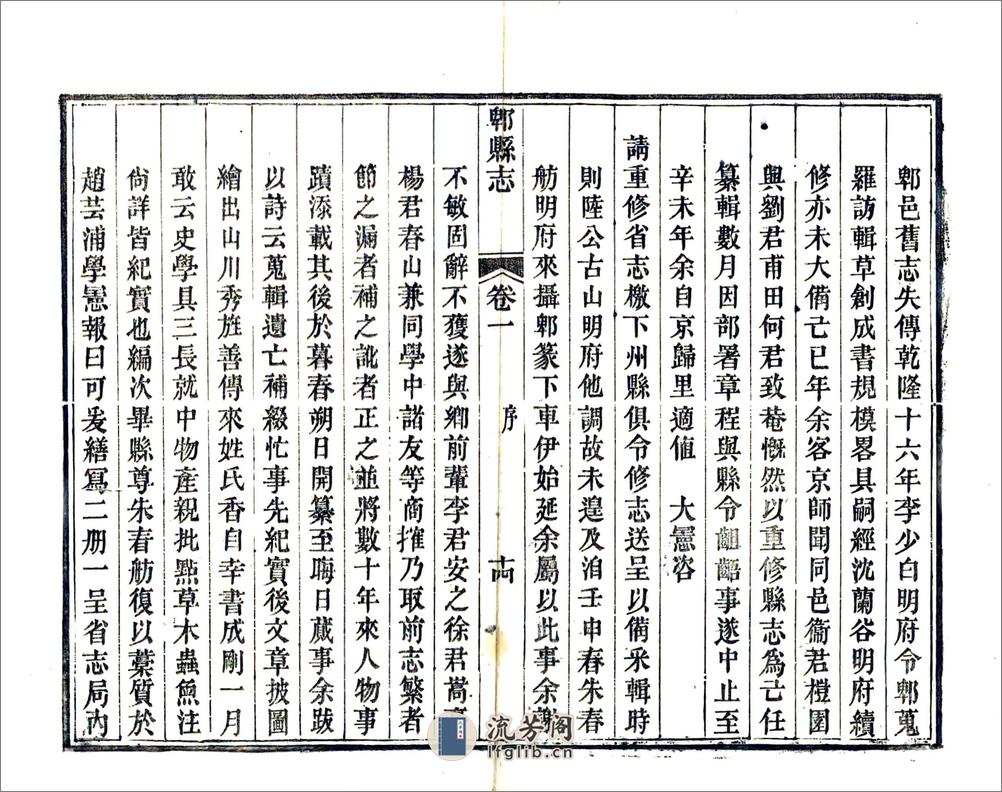 郫邑舊志失傳乾隆十六年李少白明府令郫蒐
羅訪輯草創成書規模畧具嗣經沈蘭谷明府續
修亦未大備己巳年余客京師聞同邑衞君橙園
與劉君甫田何君致菴慨然以重修縣志爲己任
纂輯數月因部署章程與縣令齟齬事遂中止至
辛未年余自京歸里適值 大憲咨
請重修省志檄下州縣俱令修志送呈以備采輯時
則陸公古山明府他調故未遑及洎壬申春朱春
舫明府來攝郫篆下車伊始延余屬以此事余謝
郫縣志 卷一 序 十四
不敏固辭不獲遂與鄉前輩李君安之徐君嵩
楊君春山兼同學中諸友等商搉乃取前志繁者
節之漏者補之訛者正之並將數十年來人物事
蹟添載其後於暮春朔日開纂至晦日蕆事余跋
以詩云蒐輯遺亡補綴忙事先紀實後文章披圖
繪出山川秀旌善傳來姓氏香自幸書成剛一月
敢云史學具三長就中物產親批點草木蟲魚注
尙詳皆紀實也編次畢縣尊朱春舫復以藁質於
趙芸浦學憲報曰可爰繕寫二册一呈省志局內
流芳阁
lfglib.cn